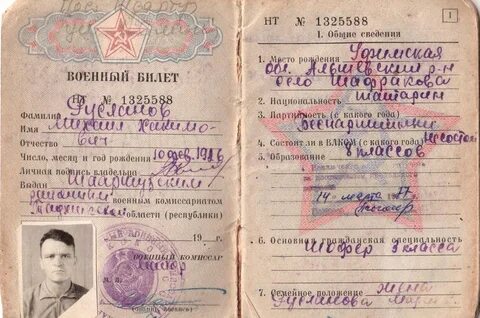 ВОЕННЫЙ БИЛЕТ
НТ № 1325588
Фамилия Русланов
Имя Михаил Хакимо-
Отчество вич
Число, месяц и год рождения 10 фев. 1926
Личная подпись владельца
Выдан
районным военным комиссариатом
области (республики)
19 г.
М. П.
ВОЕННЫЙ КОМИССАР
НТ № 1325588
1
I. Общие сведения
1. Место рождения Уфимская
обл. Альшеевский р-н
село Шафраново
2. Национальность татарин
3. Партийность (с какого года)
беспартийный
4. Состоит ли в ВЛКСМ (с какого года) не состоит
5. Образование 8 классов
14 марта 57
6. Основная гражданская специальность
Шофер 3 класса
7. Семейное положение жена
Русланова